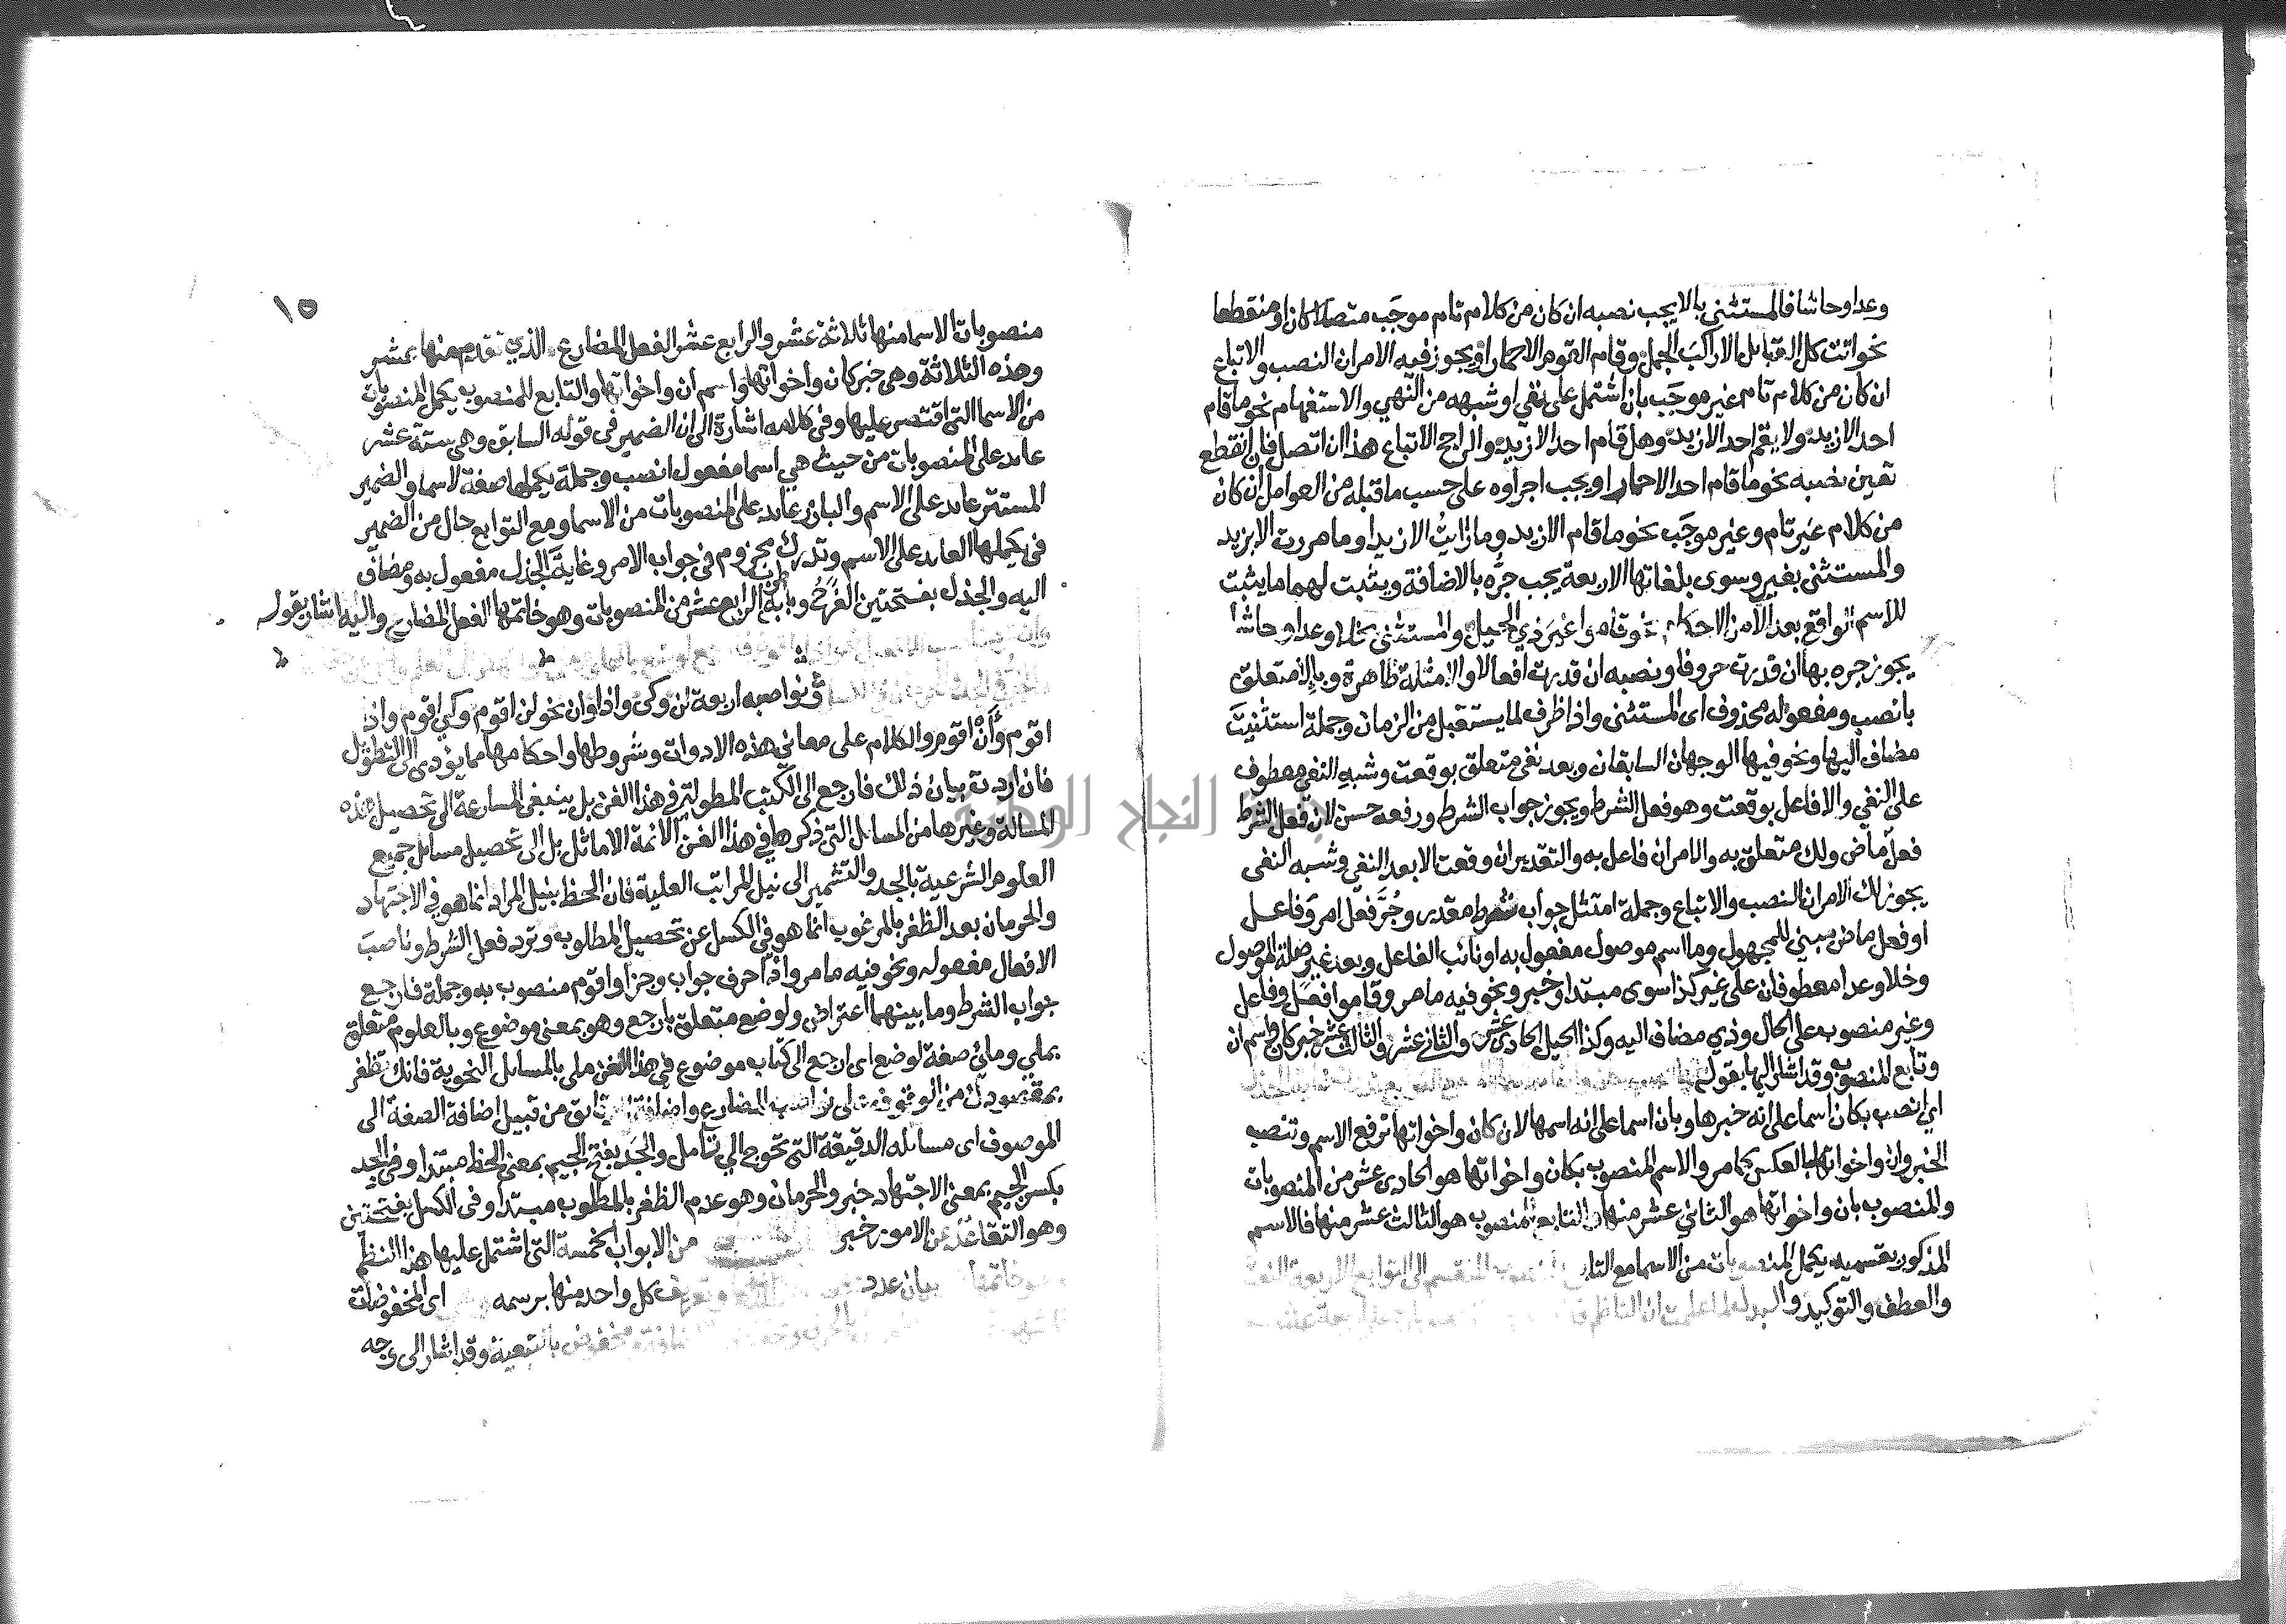 وعدا وحاشا فالمستثنى بالا يجب نصبه ان كان من كلام تام موجَب متصلا كان او منقطعا
نحو اتت كل القبائل الا راكبَ الجمل وقام القوم الا حمارا ويجوز فيه الامران النصب والاتباع
ان كان من كلام تام غير موجَب بان اشتمل على نفي او شبهه من النهي والاستفهام نحو ما قام
احد الا زيد ولا يقم احد الا زيد وهل قام احد الا زيد والراجح الاتباع هذا ان اتصل فان انقطع
تعين نصبه نحو ما قام احد الا حمارا ويجب اجراوه على حسب ما قبله من العوامل ان كان
من كلام غير تام وغير موجَب نحو ما قام الا زيد وما رايتُ الا زيدا وما مررت الا بزيد
والمستثنى بغير وسوى بلغاتها الاربعة يجب جرُّه بالاضافة ويثبت لهما ما يثبت
للاسم الواقع بعد الا من الاحكام نحو قاموا غيرَ ذي الحيل والمستثنى بخلا وعدا وحاشا
يجوز جره بها ان قدرت حروفا ونصبه ان قدرت افعالا والامثلة ظاهرة وبالا متعلق
بانصب ومفعوله محذوف اى المستثنى واذا ظرف لما يستقبل من الزمان وجملة استثنيتَ
مضاف اليها ونحو فيها الوجهان السابقان وبعد نفي متعلق بوقعت وشبهِ النفي معطوف
على النفي والا فاعل بوقعت وهو فعل الشرط ويجوز جواب الشرط ورفعه حسن لان فعل الشرط
فعل ماض ولك متعلق به والامران فاعل به والتقدير ان وقعت الا بعد النفي وشبه النفى
يجوز لك الامران النصب والاتباع وجملة امتثل جواب شرط مقدر وجُرَّ فعل امر وفاعل
او فعل ماض مبني للمجهول وما اسم موصول مفعول به او نائب الفاعل وبعد غير صلة الموصول
وخلا وعدا معطوفان على غير كذا سوى مبتدا وخبر ونحو فيه ما مر وقاموا فعل وفاعل
وغير منصوب على الحال وذي مضاف اليه وكذا الحيل الحادى عشر والثانى عشر والثالث عشر خبر كان واسم ان
وتابع المنصوب وقد اشار اليها بقوله
اي انصب بكان اسما على انه خبرها وبان اسما على انه اسمها لان كان واخواتها ترفع الاسم وتنصب
الخبر وان واخواتها بالعكس كما مر والاسم المنصوب بكان واخواتها هو الحادى عشر من المنصوبات
والمنصوب بان واخواتها هو الثاني عشر منها والتابع المنصوب هو الثالث عشر منها فالاسم
المذكور بقسميه يكمل المنصوبات من الاسما مع التابع
والعطف والتوكيد والبدل
١٥
منصوبات الاسما منها ثلاثة عشر والرابع عشر الفعل المضارع والذي تقدم منها عشر
وهذه الثلاثة وهي خبر كان واخواتها واسم ان واخواتها والتابع المنصوب يكمل المنصوبات
من الاسما التي اقتصر عليها وفي كلامه اشارة الى ان الضمير في قوله السابق وهي ستة عشر
عايد على المنصوبات من حيث هي اسما مفعول انصب وجملة يكملها صفة لاسما والضمير
المستتر عايد على الاسم والبارز عايد على المنصوبات من الاسما ومع التوابع حال من الضمير
في يكملها العايد على الاسم وتدرك مجزوم في جواب الامر وغاية الجذل مفعول به ومضاف
اليه والجذل بفتحتين الفرح وبابه طرب الرابع عشر من المنصوبات وهو خاتمها الفعل المضارع واليه اشار بقوله
ونواصبه اربعة لن وكى واذا وان نحو لن اقوم وكي اقوم واذا
اقوم وأَنْ اقوم والكلام على معاني هذه الادوات وشروطها واحكامها مما يؤدى الى التطويل
فان اردت بيان ذلك فارجع الى الكتب المطولة في هذا الفن بل ينبغي المسارعة الى تحصيل هذه
المسالة وغيرها من المسائل التي ذكرها في هذا الفن الائمة الاماثل بل الى تحصيل مسائل جميع
العلوم الشرعية بالجد والتشمير الى نيل المراتب العلية فان الحظ بنيل المراد انما هو في الاجتهاد
والحرمان بعد الظفر بالمرغوب انما هو في الكسل عن تحصيل المطلوب وترد فعل الشرط وناصبَ
الافعال مفعوله ونحو فيه ما مر واذًا حرف جواب وجزا واقوم منصوب به وجملة فارجع
جواب الشرط وما بينهما اعتراض ولوضع متعلق بارجع وهو بمعنى موضوع وبالعلوم متعلق
بملي وملي صفة لوضع اى ارجع الى كتاب موضوع في هذا الفن ملي بالمسائل النحوية فانك تظفر
بمقصودك من الوقوف على نواصب المضارع واضافة من قبيل اضافة الصفة الى
الموصوف اى مسائله الدقيقة التى تحوج الي تامل والجَد بفتح الجيم بمعنى الحظ مبتدا وفى الجد
بكسر الجيم بمعنى الاجتهاد خبر والحرمان وهو عدم الظفر بالمطلوب مبتدا وفى الكسل بفتحتين
وهو التقاعد عن الامور خبر من الابواب الخمسة التى اشتمل عليها هذا النظم
بيان عدد كل واحد منها برسمه اى المخفوضات
مخفوض بالتبعية وقد اشار الى وجه
جامعة النجاح الوطنية